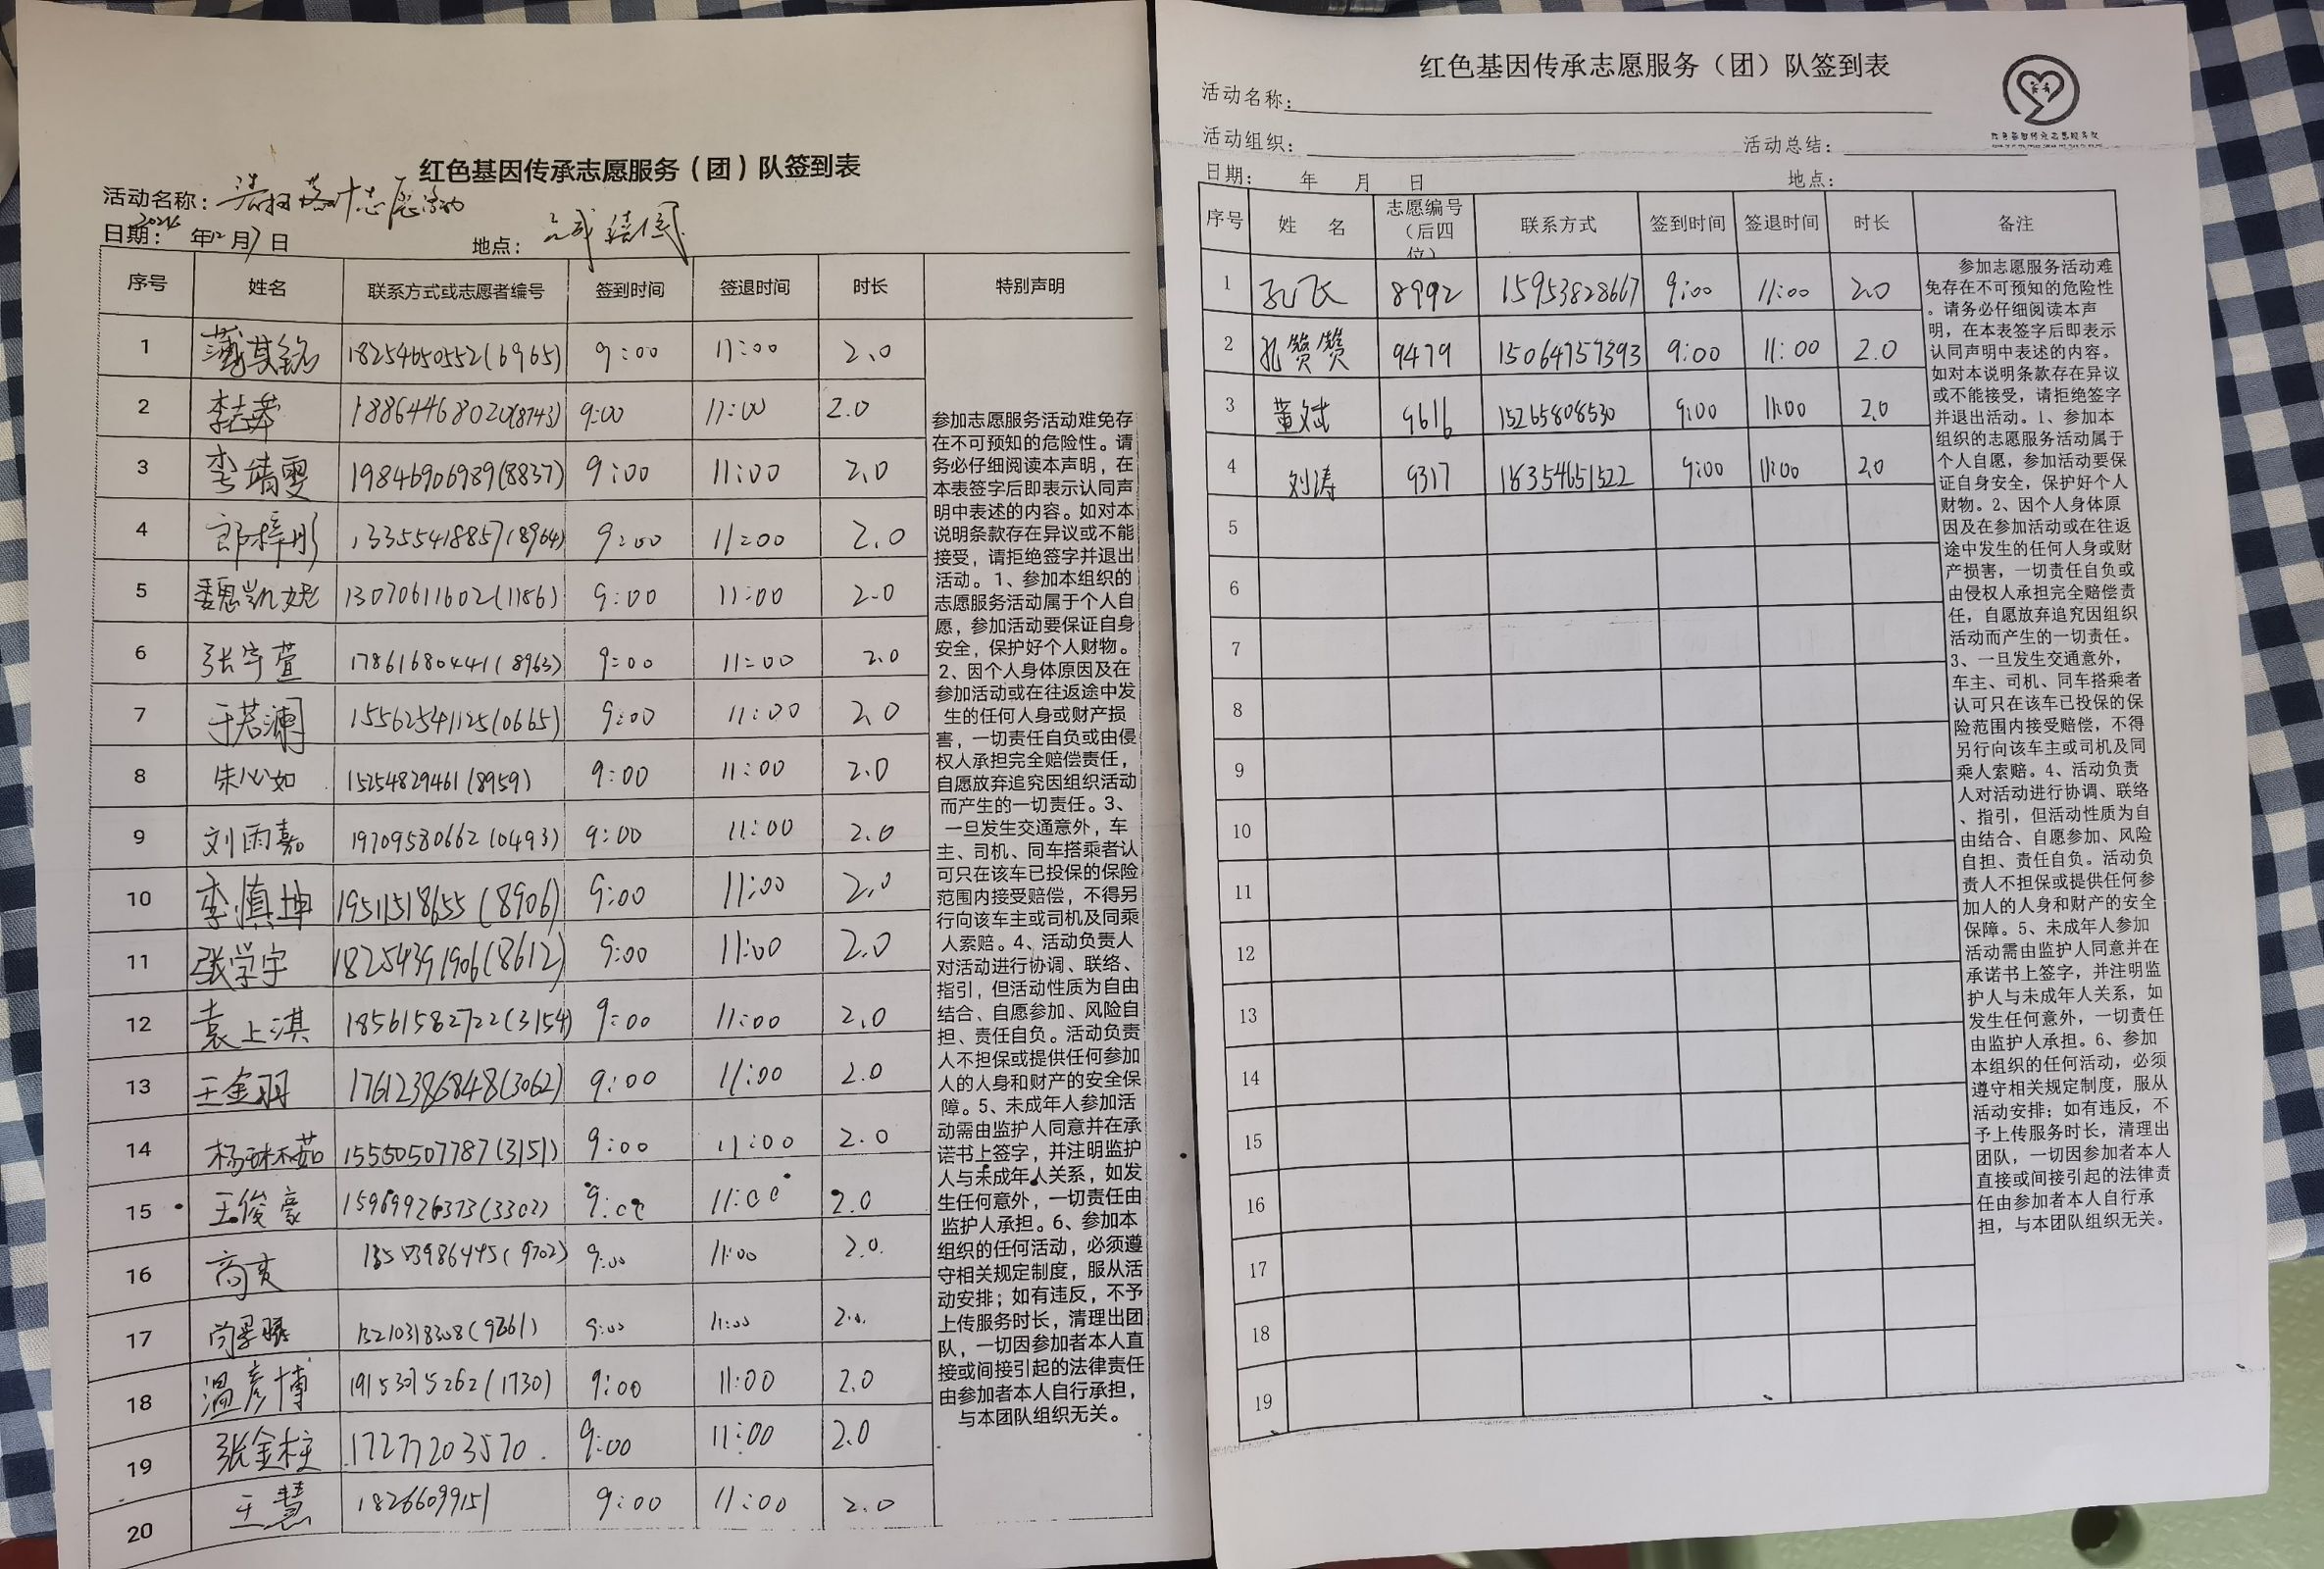 红色基因传承志愿服务（团）队签到表
活动名称：清扫落叶志愿活动
日期： 年12月7日 地点：
序号 姓名 联系方式或志愿者编号 签到时间 签退时间 时长 特别声明
1 18254650552(6965) 9:00 11:00 2.0
2 18864468020(8743) 9:00 11:00 2.0
3 李靖雯 19846906989(8837) 9:00 11:00 2.0
4 郎梓彤 13355418857(8964) 9:00 11:00 2.0
5 魏凯妮 13070611602(1186) 9:00 11:00 2.0
6 张宇萱 17861680441(8963) 9:00 11:00 2.0
7 于若澜 15562541125(0665) 9:00 11:00 2.0
8 朱心如 15254829461(8959) 9:00 11:00 2.0
9 刘雨嘉 19709580662(0493) 9:00 11:00 2.0
10 李慎坤 19511518655(8906) 9:00 11:00 2.0
11 张学宇 18254391906(8612) 9:00 11:00 2.0
12 袁上淇 18561582722(3154) 9:00 11:00 2.0
13 王金羽 17612386848(3062) 9:00 11:00 2.0
14 15550507787(3151) 9:00 11:00 2.0
15 王俊豪 15969926373(3302) 9:00 11:00 2.0
16 高爽 9:00 11:00 2.0
17 9:00 11:00 2.0
18 温彦博 19153015262(1730) 9:00 11:00 2.0
19 张金柱 17277203570 9:00 11:00 2.0
20 王慧 18266099151 9:00 11:00 2.0
参加志愿服务活动难免存
在不可预知的危险性。请
务必仔细阅读本声明，在
本表签字后即表示认同声
明中表述的内容。如对本
说明条款存在异议或不能
接受，请拒绝签字并退出
活动。1、参加本组织的
志愿服务活动属于个人自
愿，参加活动要保证自身
安全，保护好个人财物。
2、因个人身体原因及在
参加活动或在往返途中发
生的任何人身或财产损
害，一切责任自负或由侵
权人承担完全赔偿责任，
自愿放弃追究因组织活动
而产生的一切责任。3、
一旦发生交通意外，车
主、司机、同车搭乘者认
可只在该车已投保的保险
范围内接受赔偿，不得另
行向该车主或司机及同乘
人索赔。4、活动负责人
对活动进行协调、联络、
指引，但活动性质为自由
结合、自愿参加、风险自
担、责任自负。活动负责
人不担保或提供任何参加
人的人身和财产的安全保
障。5、未成年人参加活
动需由监护人同意并在承
诺书上签字，并注明监护
人与未成年人关系，如发
生任何意外，一切责任由
监护人承担。6、参加本
组织的任何活动，必须遵
守相关规定制度，服从活
动安排；如有违反，不予
上传服务时长，清理出团
队，一切因参加者本人直
接或间接引起的法律责任
由参加者本人自行承担，
与本团队组织无关。
红色基因传承志愿服务（团）队签到表
活动名称：
活动组织： 活动总结：
日期： 年 月 日 地点：
序号 姓 名 志愿编号（后四位） 联系方式 签到时间 签退时间 时长 备注
1 孔飞 8992 15953828667 9:00 11:00 2.0
2 孔赞赞 9479 15064757393 9:00 11:00 2.0
3 董斌 9616 15265808530 9:00 11:00 2.0
4 刘涛 9317 18354651522 9:00 11:00 2.0
5
6
7
8
9
10
11
12
13
14
15
16
17
18
19
参加志愿服务活动难
免存在不可预知的危险性
。请务必仔细阅读本声
明，在本表签字后即表示
认同声明中表述的内容。
如对本说明条款存在异议
或不能接受，请拒绝签字
并退出活动。1、参加本
组织的志愿服务活动属于
个人自愿，参加活动要保
证自身安全，保护好个人
财物。2、因个人身体原
因及在参加活动或在往返
途中发生的任何人身或财
产损害，一切责任自负或
由侵权人承担完全赔偿责
任，自愿放弃追究因组织
活动而产生的一切责任。
3、一旦发生交通意外，
车主、司机、同车搭乘者
认可只在该车已投保的保
险范围内接受赔偿，不得
另行向该车主或司机及同
乘人索赔。4、活动负责
人对活动进行协调、联络
、指引，但活动性质为自
由结合、自愿参加、风险
自担、责任自负。活动负
责人不担保或提供任何参
加人的人身和财产的安全
保障。5、未成年人参加
活动需由监护人同意并在
承诺书上签字，并注明监
护人与未成年人关系，如
发生任何意外，一切责任
由监护人承担。6、参加
本组织的任何活动，必须
遵守相关规定制度，服从
活动安排；如有违反，不
予上传服务时长，清理出
团队，一切因参加者本人
直接或间接引起的法律责
任由参加者本人自行承
担，与本团队组织无关。